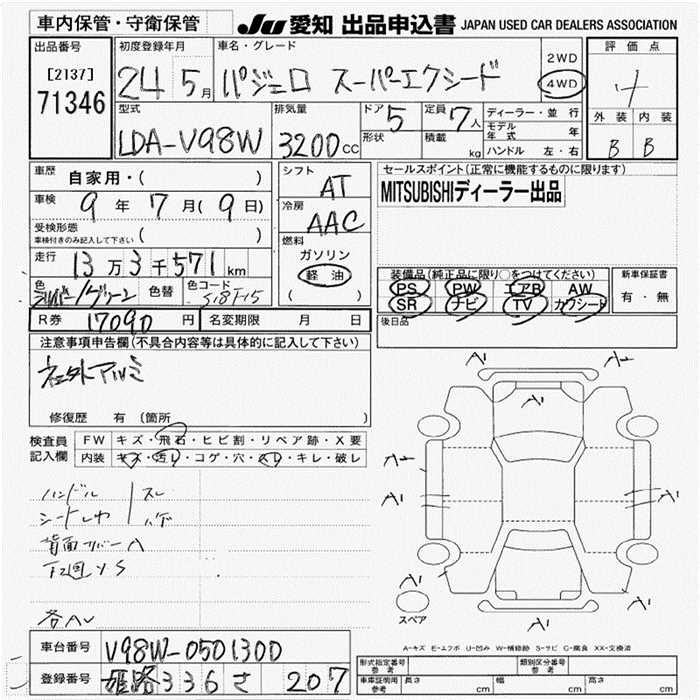 車内保管・守衛保管
JU 愛知 出品申込書 JAPAN USED CAR DEALERS ASSOCIATION
出品番号
[2137]
71346
初度登録年月
24 5月
車名・グレード
パジェロ スーパーエクシード
2WD
4WD
評価点
4
外装 内装
B B
型式
LDA-V98W
排気量
3200cc
ドア
5
形状
定員
7人
積載
kg
ディーラー・並行
モデル年式 年
ハンドル 左・右
車歴 自家用・( )
車検 9年7月(9日)
受検形態
車検付きのみ記入して下さい ( )
走行 13万3千571km
色 シルバー/グリーン
色替
色コード
R券 17090円
名変期限 月 日
シフト
AT
冷房
AAC
燃料
ガソリン
軽油
( )
セールスポイント(正常に機能するものに限ります)
MITSUBISHIディーラー出品
装備品(純正品に限り○をつけてください)
PS PW エアB AW
SR ナビ TV カワシート
新車保証書
有・無
後日品
注意事項申告欄(不具合内容等は具体的に記入して下さい)
社外アルミ
修復歴 有(箇所 )
検査員記入欄
FW キズ・飛石・ヒビ割・リペア跡・X要
内装 キズ・汚れ・コゲ・穴・スレ・キレ・破レ
ハンドル スレ
シートしわ ハゲ
背面カバーA
下回りS
各AU
A1 A2
A1
A2
A1 A1
A1
A1 A1
スペア
A-キズ E-エクボ U-凹み W-補修跡 S-サビ C-腐食 XX-交換済
車台番号 V98W-0501300
登録番号 姫路 336 さ 207
形式指定番号 参考
類別区分番号 参考
車庫証明用 参考 長さ cm 幅 cm 高さ cm